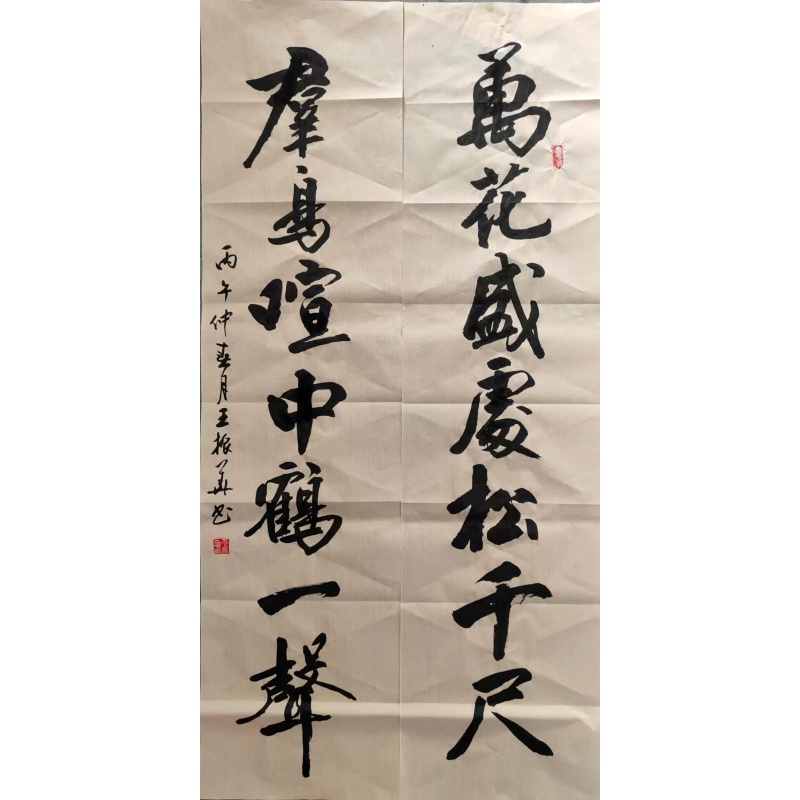 萬花盛處松千尺
羣鳥喧中鶴一聲
丙午仲春月王振華书